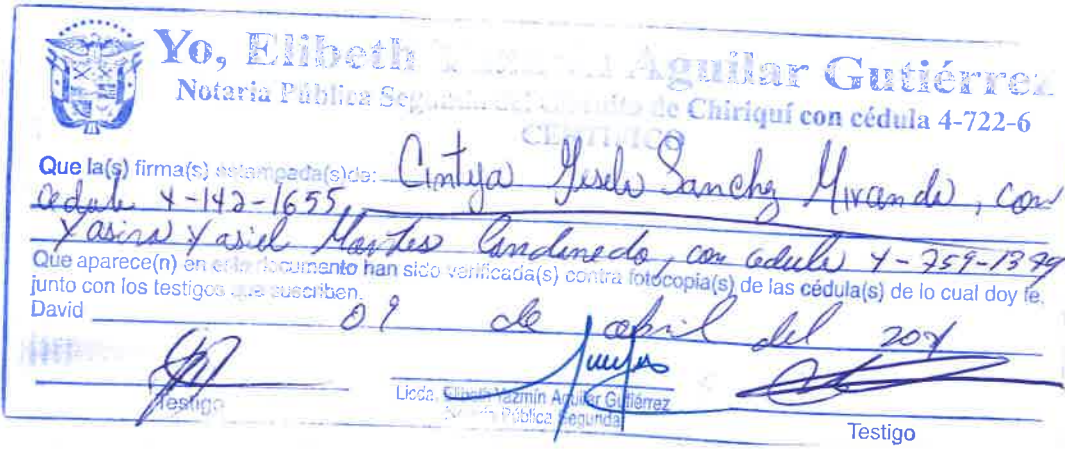 Yo, Elibeth Yazmín Aguilar Gutiérrez
Notaria Pública Segunda del Circuito de Chiriquí con cédula 4-722-6
CERTIFICO
Que la(s) firma(s) estampada(s) de: Cintya Gisela Sanchez Miranda, con
cedula 4-142-1655,
Yasira Yasiel Montes Candanedo, con cedula 4-759-1379
Que aparece(n) en este documento han sido verificada(s) contra fotocopia(s) de las cédula(s) de lo cual doy fe,
junto con los testigos que suscriben.
David 09 de abril del
Testigo
Licda. Elibeth Yazmín Aguilar Gutiérrez
Notaria Pública Segunda
Testigo